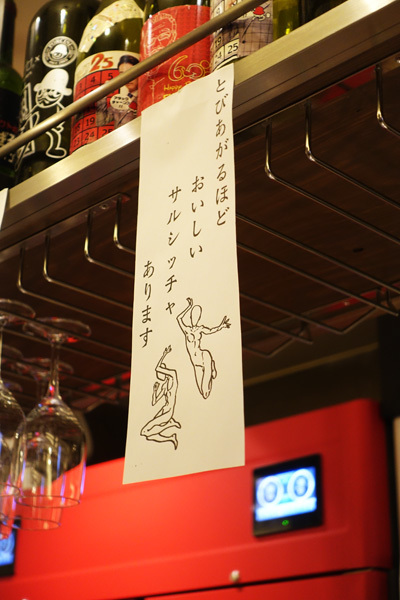 とびあがるほど
おいしい
サルシッチャ
あります
25